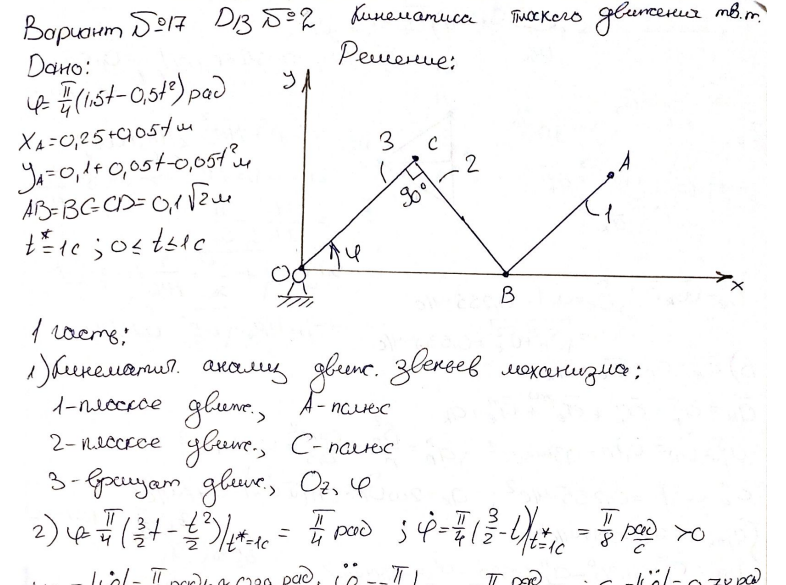 Вариант №17 ДЗ №2 Кинематика плоского движения тв.т.
Дано: Решение:
φ=π/4(1,5t-0,5t²) рад
x_A=0,25+0,05t м
y_A=0,1+0,05t-0,05t² м
AB=BC=CD=0,1√2 м
t*=1c ; 0≤t≤1c
y
3 C 2
90°
A
1
O φ
B
x
1 часть:
1) Кинематич. анализ движ. звеньев механизма:
1-плоское движ., A-полюс
2-плоское движ., C-полюс
3-вращат движ., Oz, φ
2) φ=π/4(3/2t-t²/2)|t*=1c = π/4 рад ; φ̇=π/4(3/2-t)|t*=1c = π/8 рад/с >0